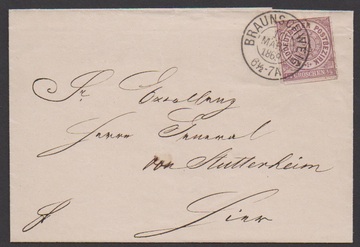 BRAUNSCHWEIG
MAI
186
6½-7A
NORDDEUTSCHER POSTBEZIRK
GROSCHEN
Sr. Excellenz
Herrn General
von Stutterheim
Hier